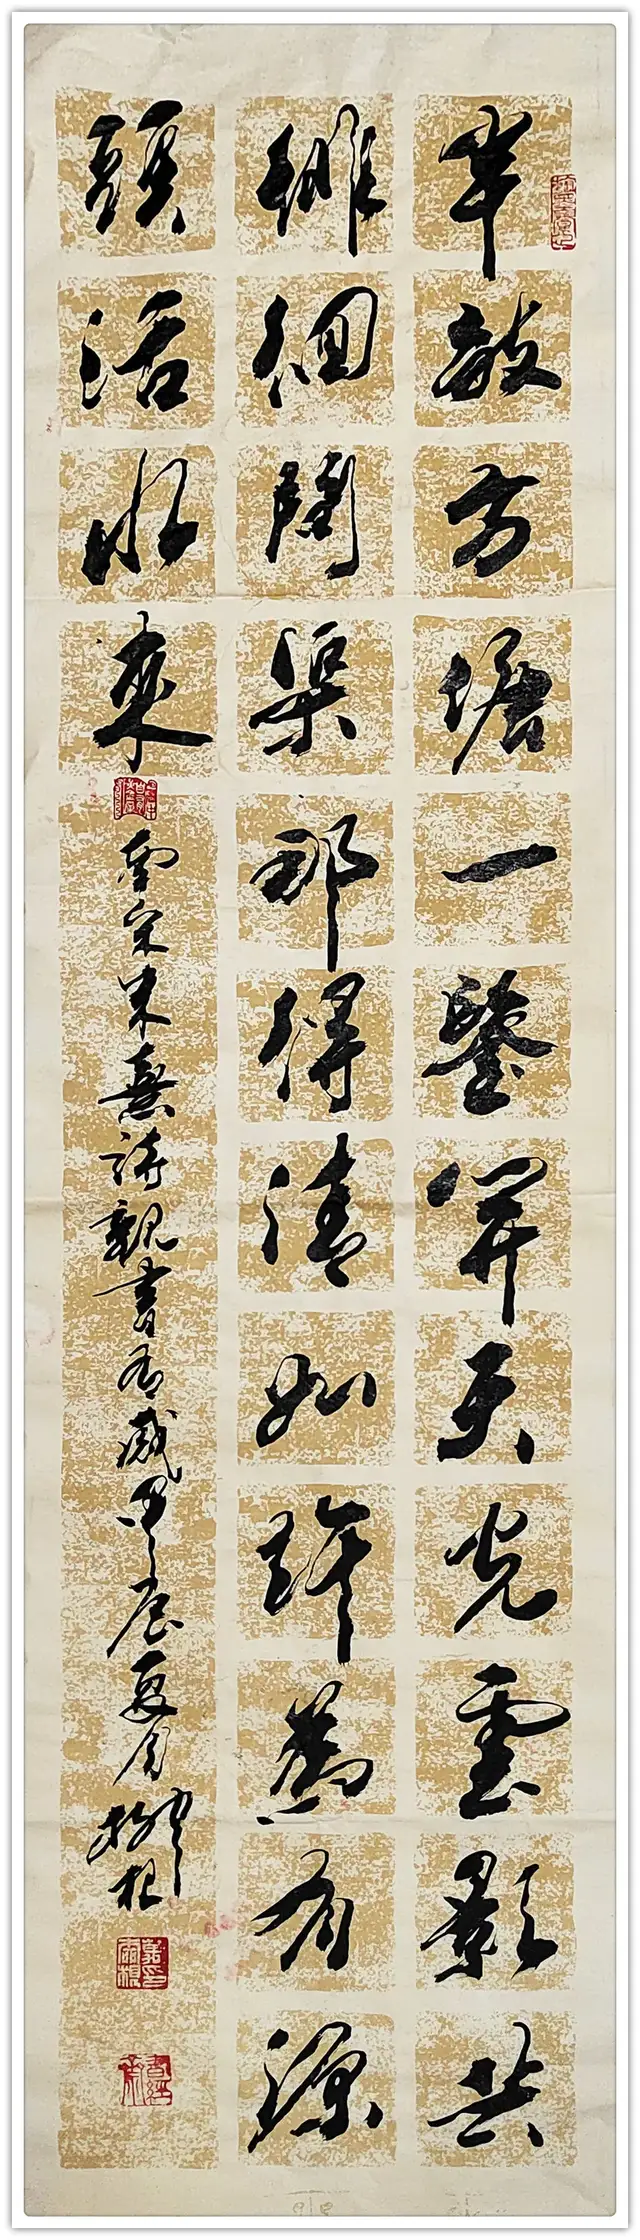 半畝方塘一鑒開天光雲影共
徘徊問渠那得清如許為有源
頭活水來
南宋朱熹詩觀書有感甲辰夏月